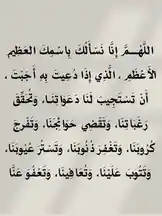 اللَّهُمَّ إِنَّا نَسْأَلُكَ بِاسْمِكَ العَظِيمِ
الأَعْظَمِ ، الَّذِي إِذَا دُعِيتَ بِهِ أَجَبْتَ ،
أَنْ تَسْتَجِيبَ لَنَا دَعَوَاتِنَا، وَتُحَقِّقَ
رَغَبَاتِنَا، وَتَقْضِي حَوَائِجَنَا، وَتُفَرِّجَ
كُرُوبَنَا، وَتَغْفِرَ ذُنُوبَنَا، وَتَسْتُرَ عُيُوبَنَا،
وَتَتُوبَ عَلَيْنَا، وَتُعَافِينَا، وَتَعْفُوَ عَنَّا